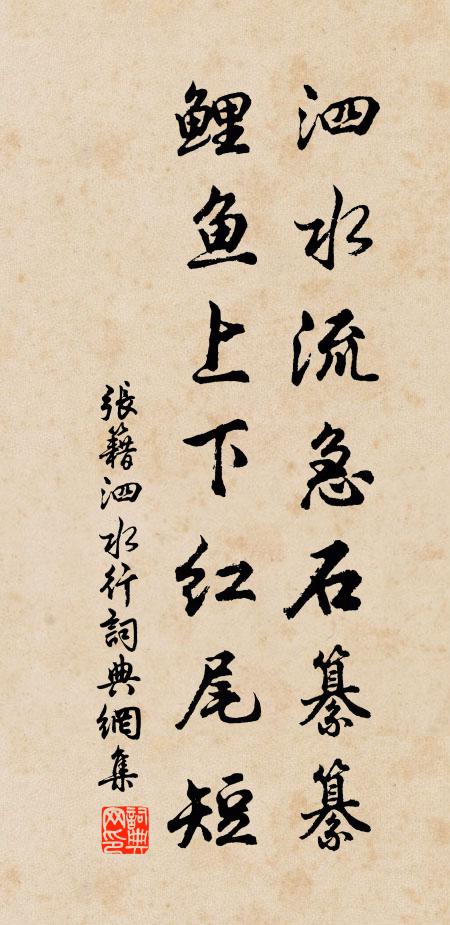 泗水流急石纂纂
鲤鱼上下红尾短
張籍泗水行詞典網集
詞典網印